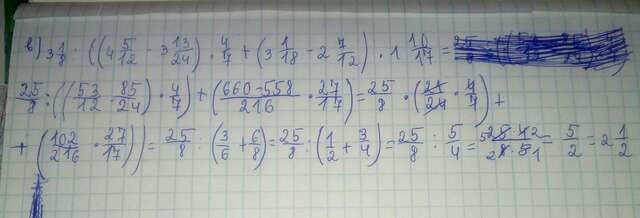 в) 3 1/8 : ((4 5/12 - 3 13/24) · 4/7 + (3 1/18 - 2 7/12) · 1 10/17 =
25/8 : ((53/12 - 85/24) · 4/7) + (660-558/216 · 27/17) = 25/8 · (21/24 · 4/7) +
+ (102/216 · 27/17)) = 25/8 : (3/6 + 6/8) = 25/8 : (1/2 + 3/4) = 25/8 : 5/4 = 25·4/8·5 = 5/2 = 2 1/2